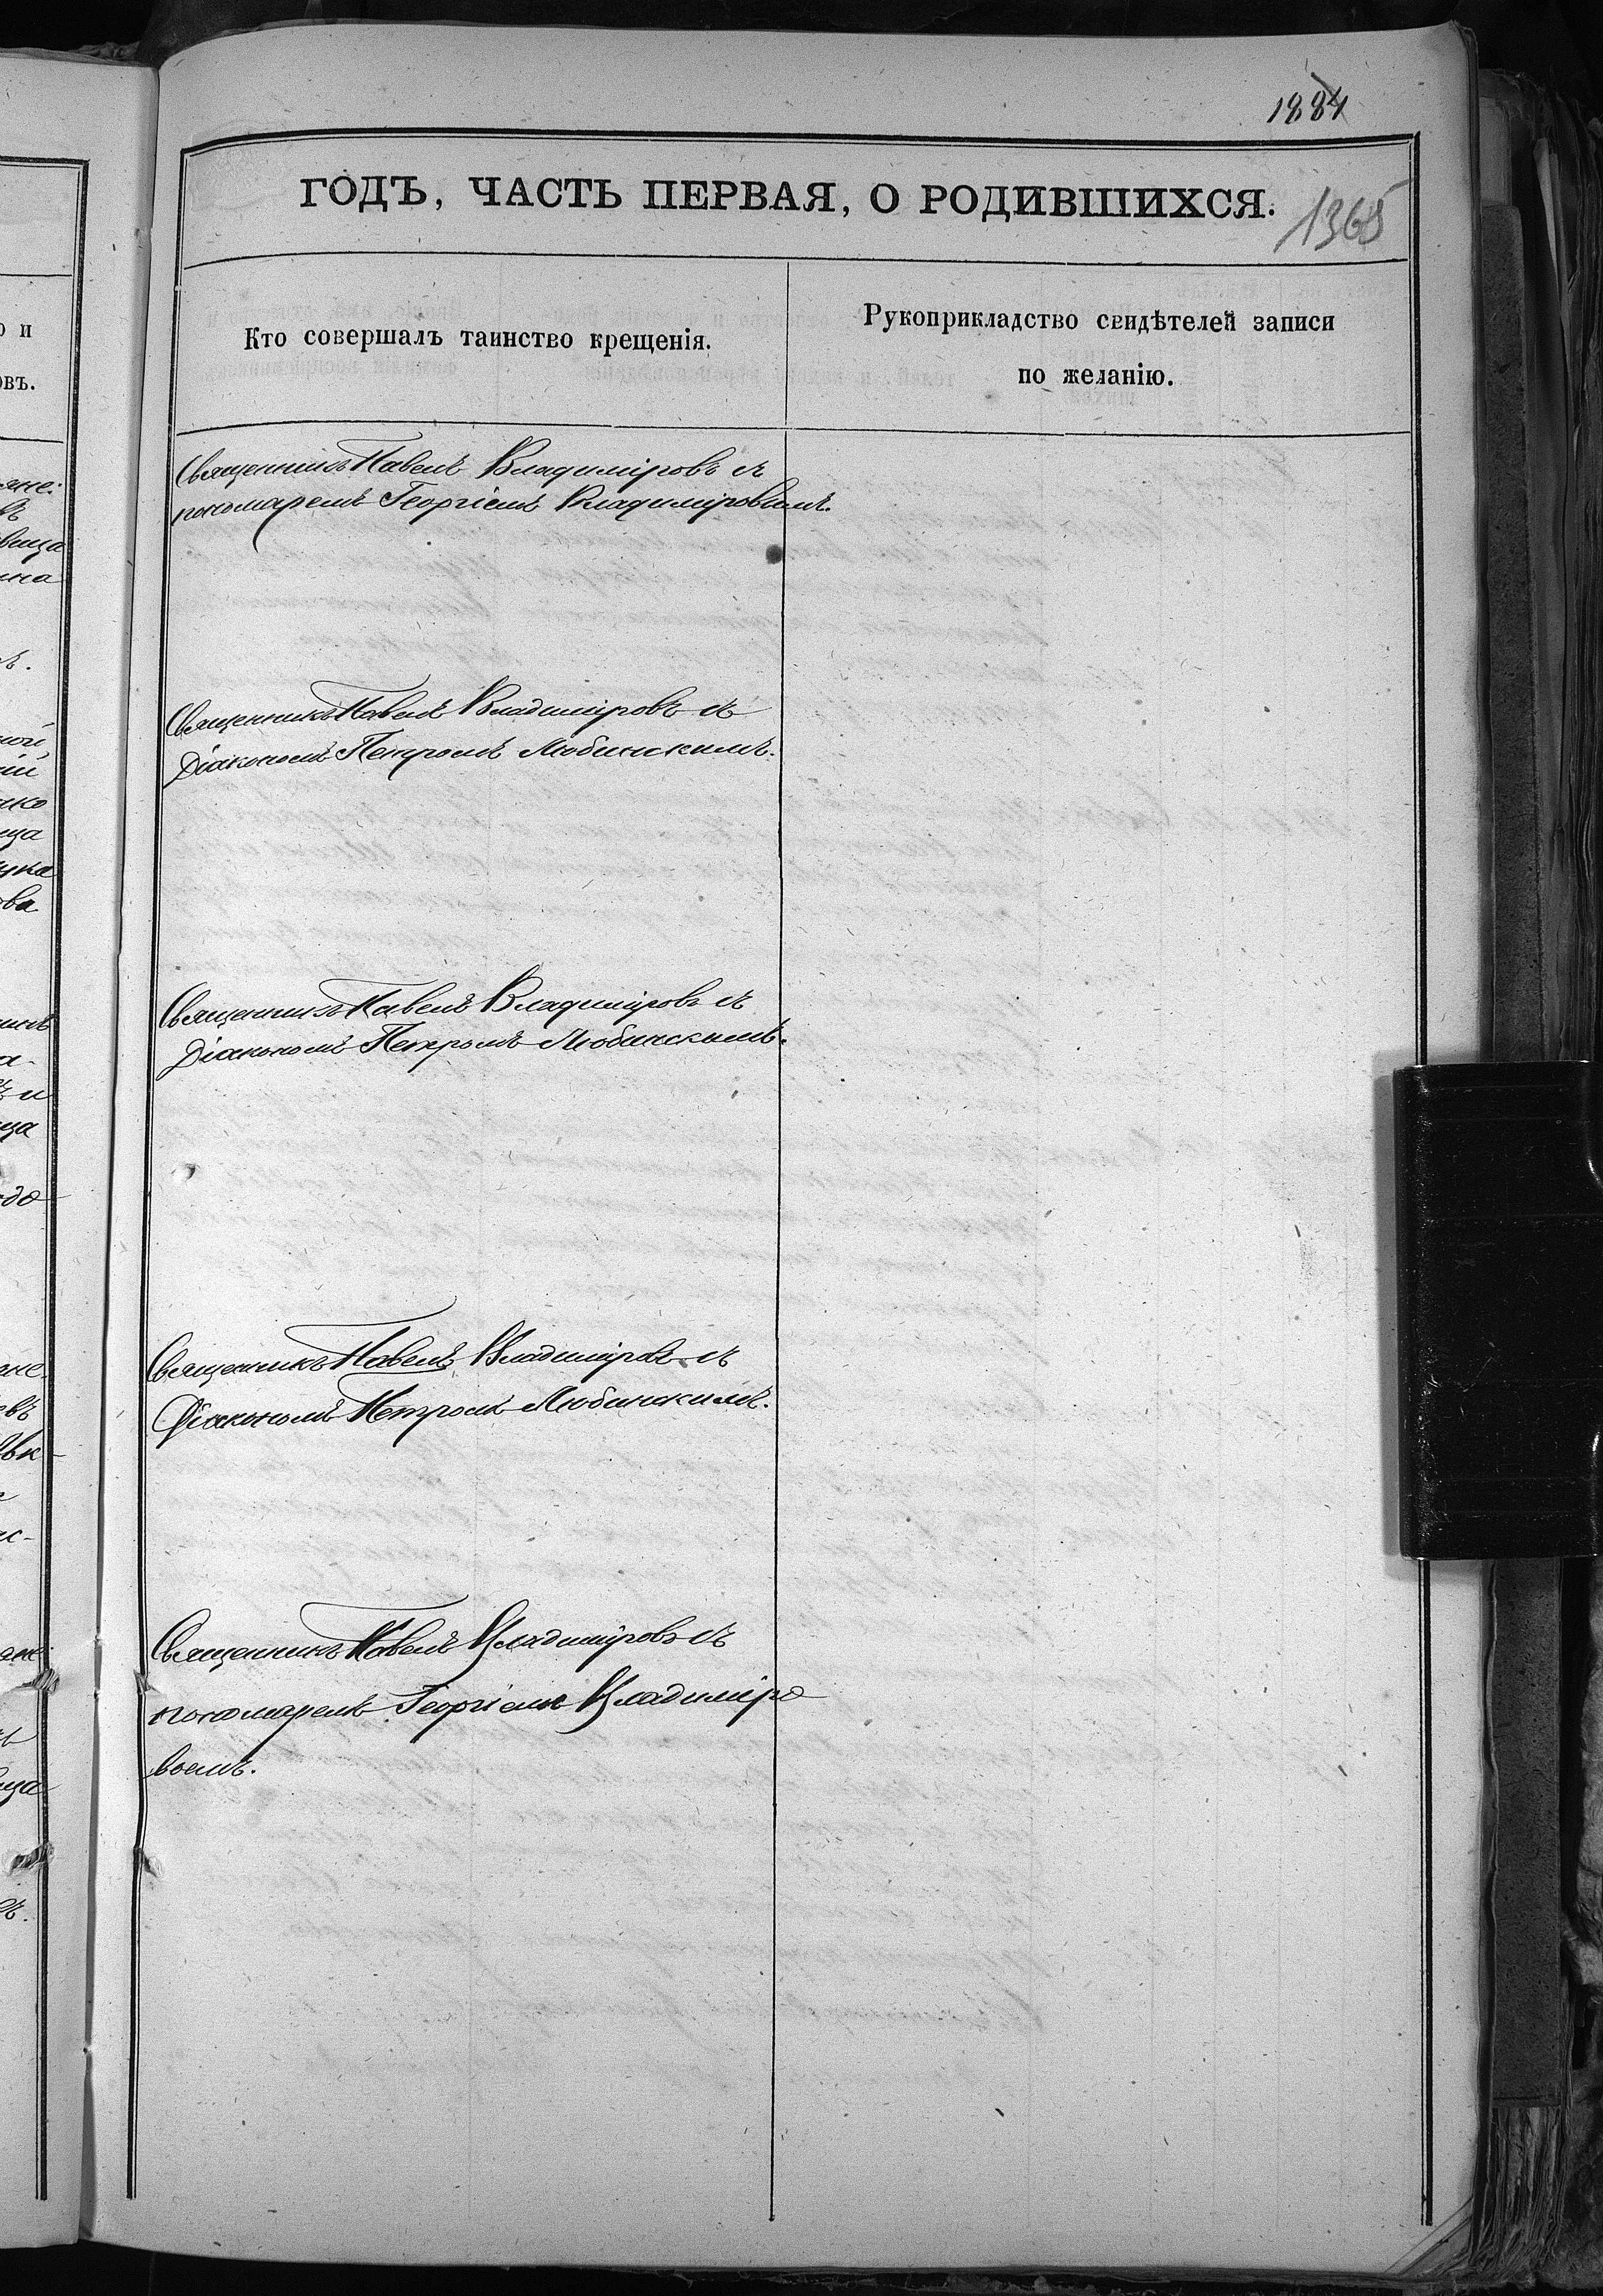 1884
ГОДЪ, ЧАСТЬ ПЕРВАЯ, О РОДИВШИХСЯ.
1365
Кто совершалъ таинство крещенія.
Рукоприкладство свидѣтелей записи
по желанію.
Священникъ Павелъ Владиміровъ съ
пономаремъ Георгіемъ Владиміровымъ.
Священникъ Павелъ Владиміровъ съ
Діакономъ Петромъ Любинскимъ.
Священникъ Павелъ Владиміровъ съ
Діакономъ Петромъ Любинскимъ.
Священникъ Павелъ Владиміровъ съ
Діакономъ Петромъ Любинскимъ.
Священникъ Павелъ Владиміровъ съ
пономаремъ Георгіемъ Владиміро
вымъ.